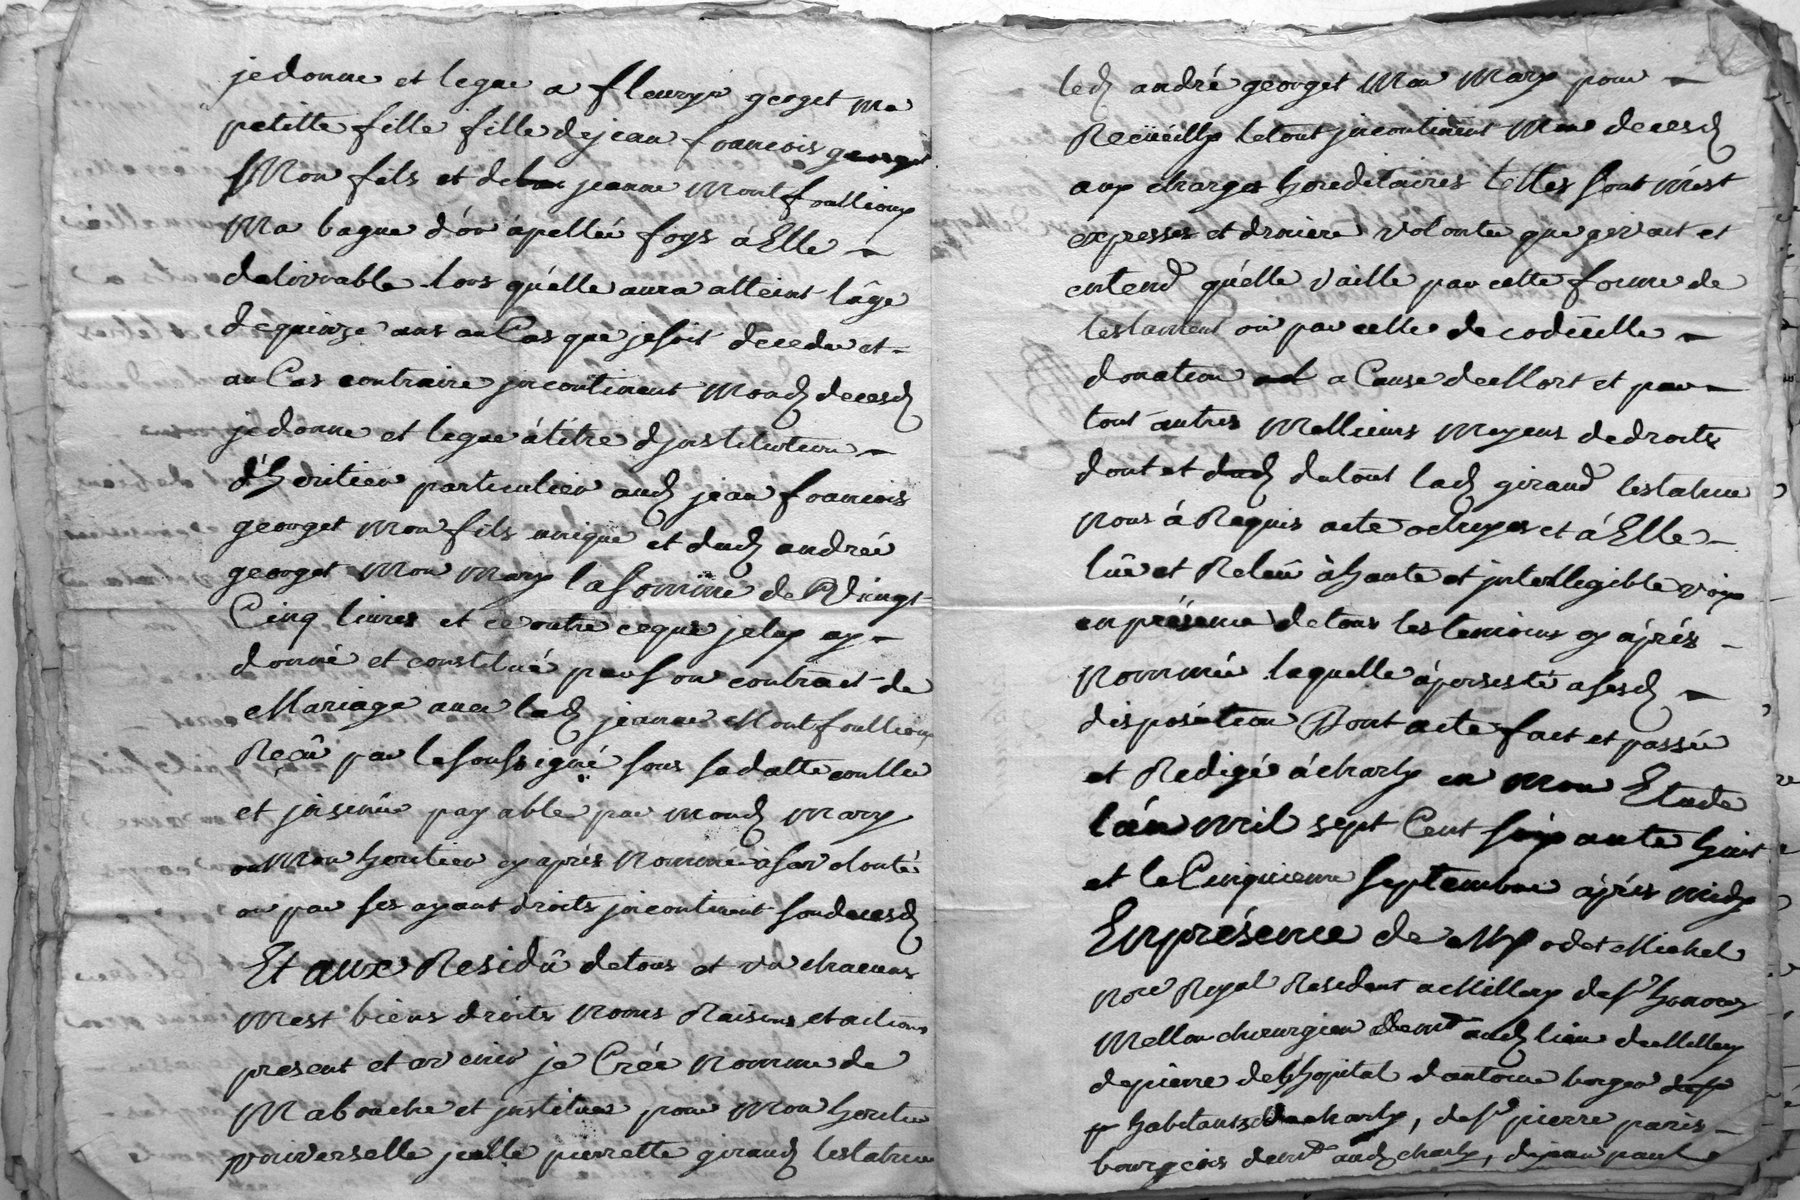 je donne et legue a fleurye georget ma
petitte fille fille de jean francois georget
Mon fils et de jeanne Montfoullioux
Ma bague d'or apellée foys à Elle
delivrable lors qu'elle aura atteint l'âge
de quinze ans au Cas que je soit decedée et
au Cas contraire jncontinent mond deces
je donne et legue à titre d'jnstitution
d'heritier particulier aud jean francois
georget mon fils unique et dud andrée
georget mon mary la somme de Vingt
Cinq livres et ce outre ce que je luy ay
donné et constitué par son contract de
Mariage avec lad jeanne Montfoullioux
Reçû par le soussigné sous sa datte contllé
et jnsinué payable par mond mary
ou Mon heritier cy après nommé à sa volonté
ou par ses ayant droits jncontinent son deces
Et aux Residû de tous et un chacuns
mest biens droits noms Raisons et actions
present et avenir je Crée nomme de
Ma bouche et jnstitues pour Mon heritier
vniverselle jcelle pierrette giraud testatrice
led andré georget Mon Mary pour
Recüeilly le tout jncontinent Mon deces
aux charges hereditaires telles sont mest
expresses et derniere volonte que je veut et
entend qu'elle vaille par cette forme de
testament où par celle de codicille
donation a Cause de Mort et par
tout autres Mellieurs Moyens de droits
dont et du tout lad giraud testatrice
nous à Requis acte octroyes et à Elle
lûe et Relûe à haute et jntellegible voix
en présence de tous les temoins cy après
nommée laquelle à persisté a sesd
disposition Dont acte fait et passée
et Redigé à charly en mon Etude
l'an mil sept Cent soixante huit
et le Cinquieme septembre après midy
En présence de Me odet Michel
nore Royal Resident a Millery de sr honoré
Mellon chirurgien demt aud lieu de Millery
de pierre de l'hopital d'antoine borgeo
habitants de charly, de sr pierre paris
bourgeois demt aud charly, de jean paul